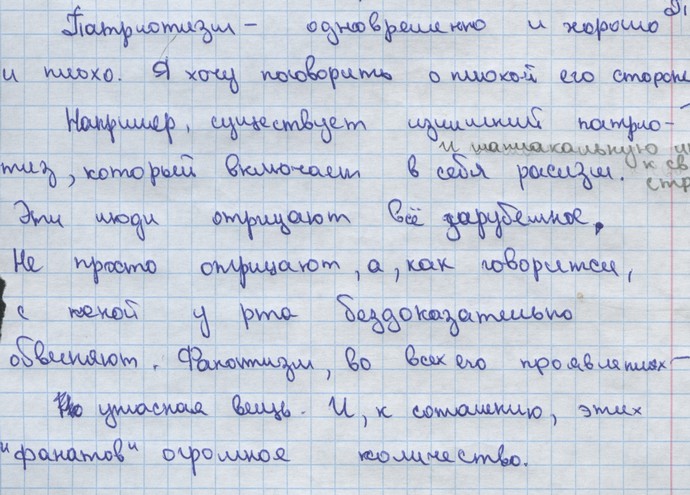 Патриотизм - одновременно и хорошо
и плохо. Я хочу поговорить о плохой его стороне
Например, существует излишний патрио-
и маниакальную
тиз, который включает в себя расизм. к св
стр
Эти люди отрицают всё зарубежное.
Не просто отрицают, а, как говорится,
с пеной у рта бездоказательно
обвеняют. Фанотизм, во всех его проявлениях -
ужасная вещь. И, к сожалению, этих
"фанатов" огромное количество.